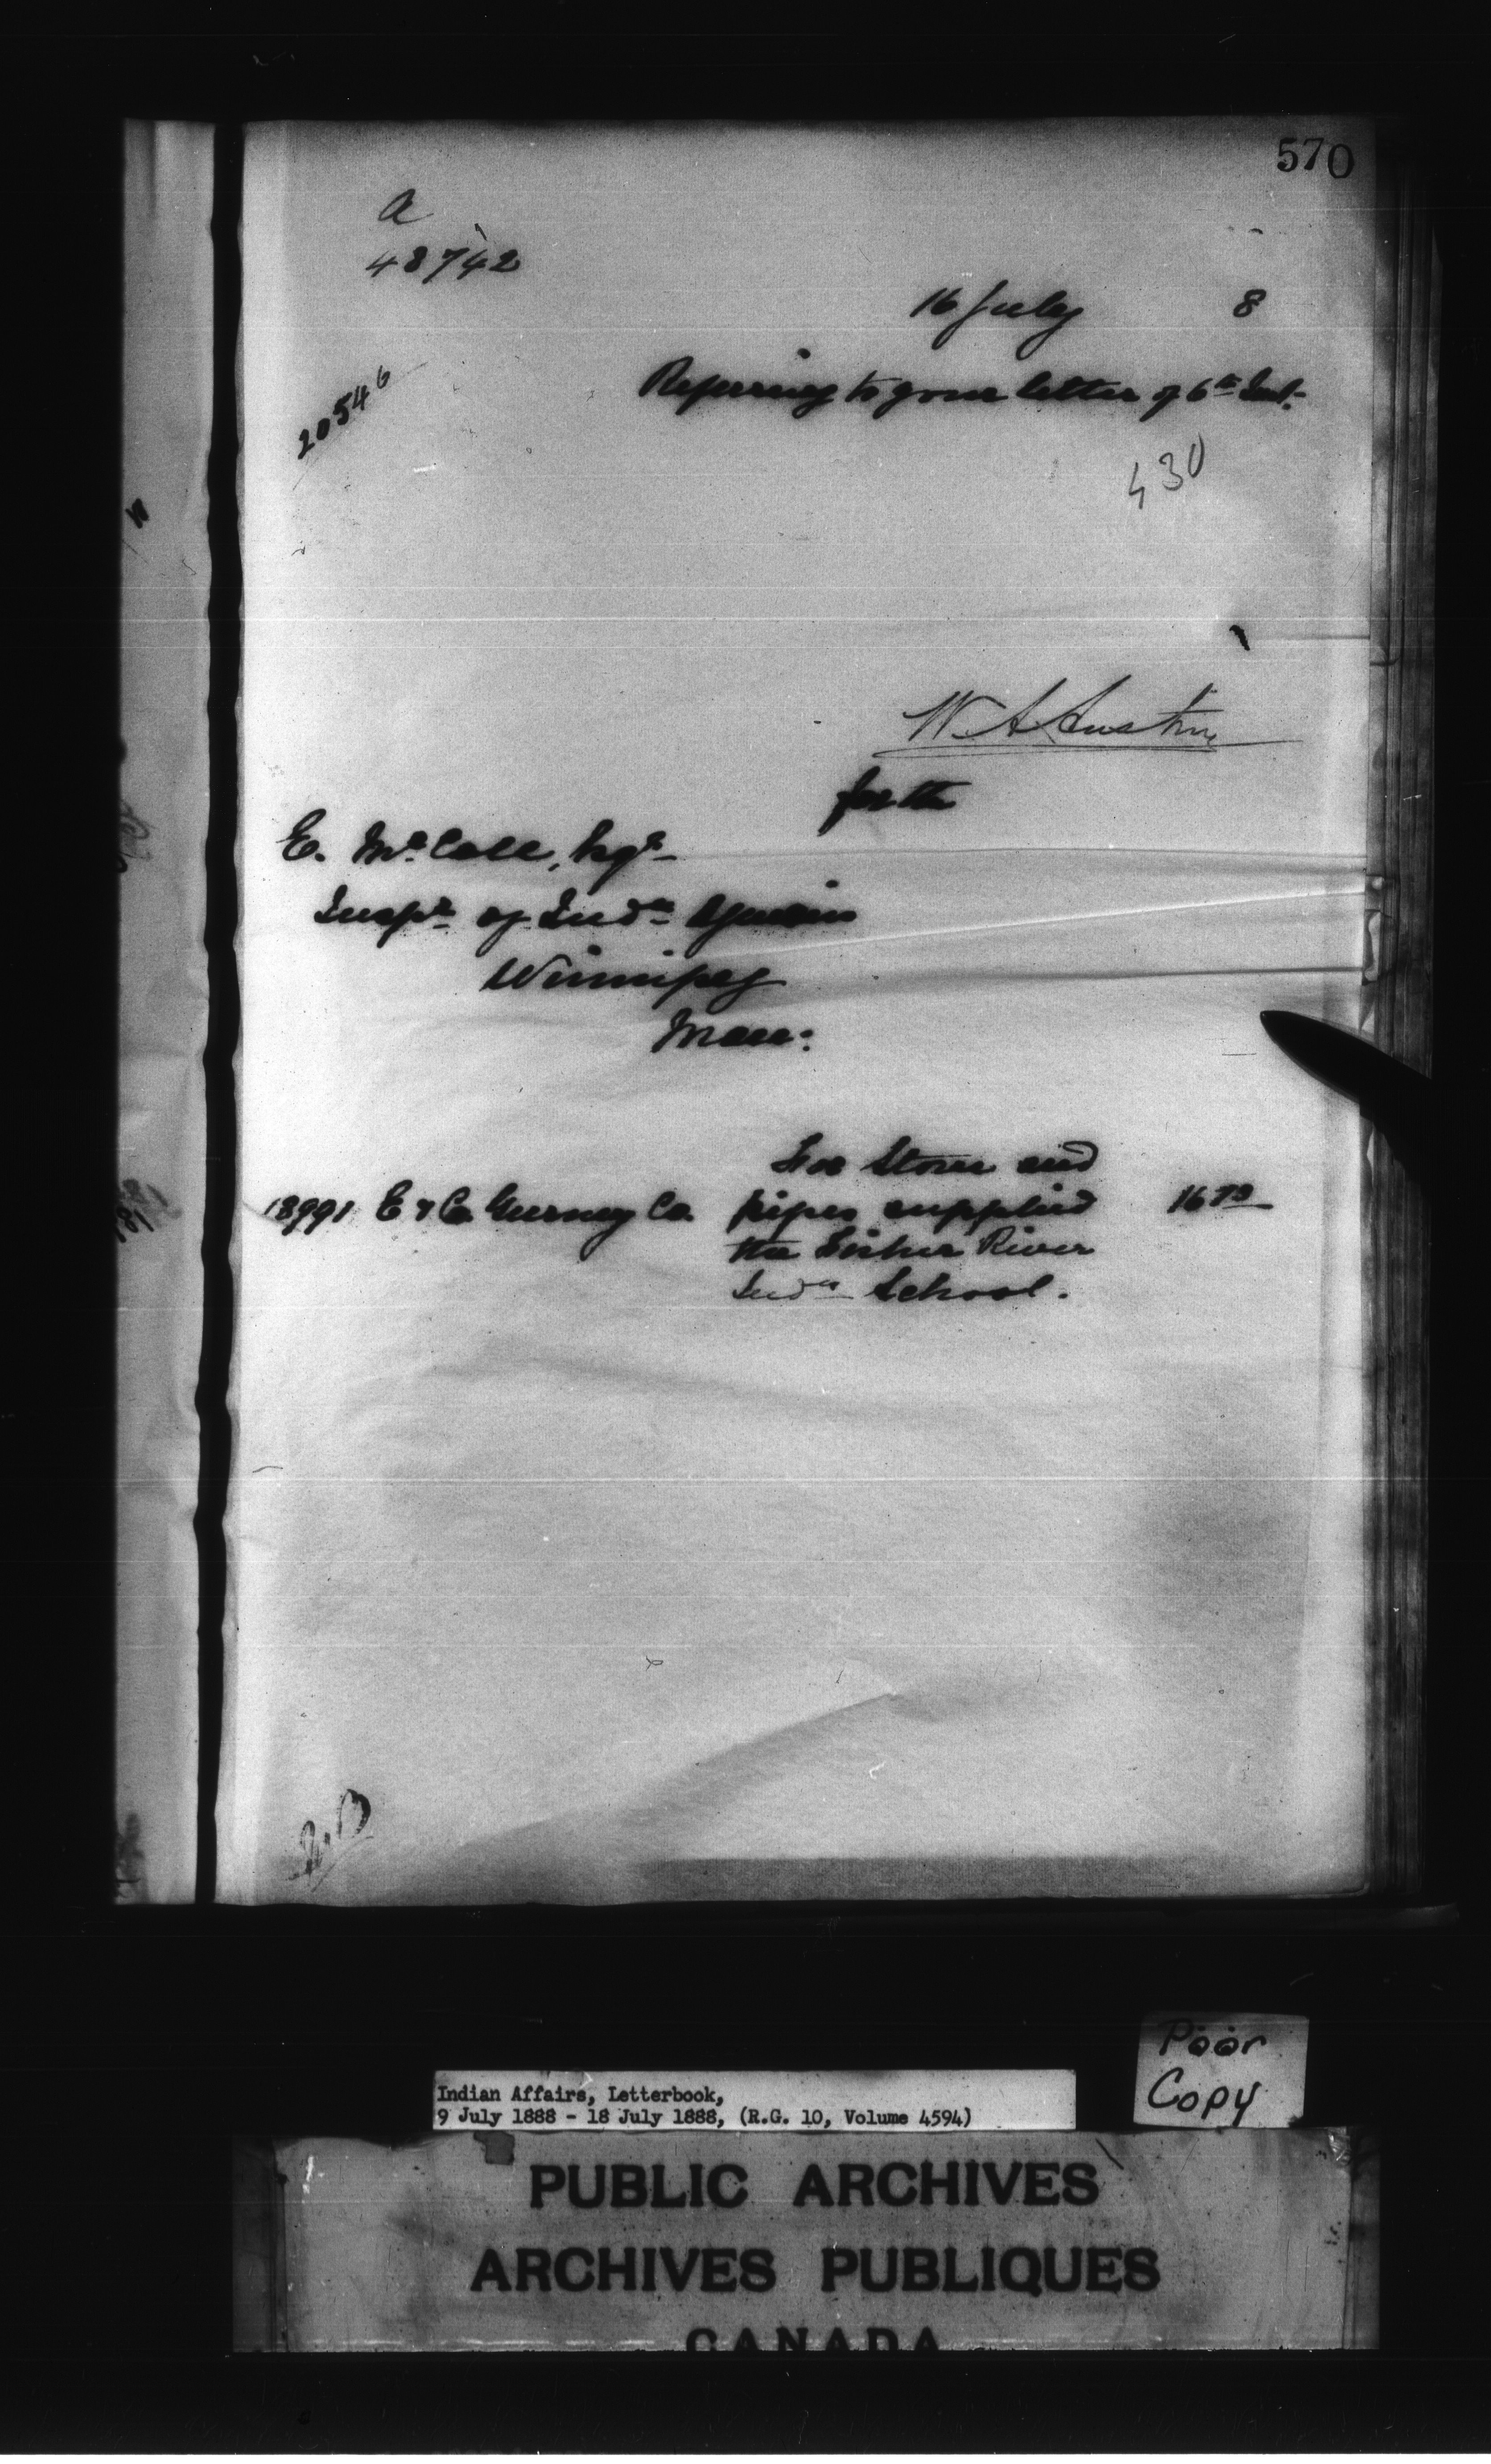 570
a
48742
16 July 8
20546
Referring to your letter of 6th Inst.
430
W. A. Austin
for the
E. McColl, Esqr
Inspr of Indn Agencies
Winnipeg
Man:
For Stove and
18991 E & C. Gurney Co. pipes supplied 16 73
the Fisher River
Indn School.
Poor
Copy
Indian Affairs, Letterbook,
9 July 1888 - 18 July 1888, (R.G. 10, Volume 4594)
PUBLIC ARCHIVES
ARCHIVES PUBLIQUES
CANADA